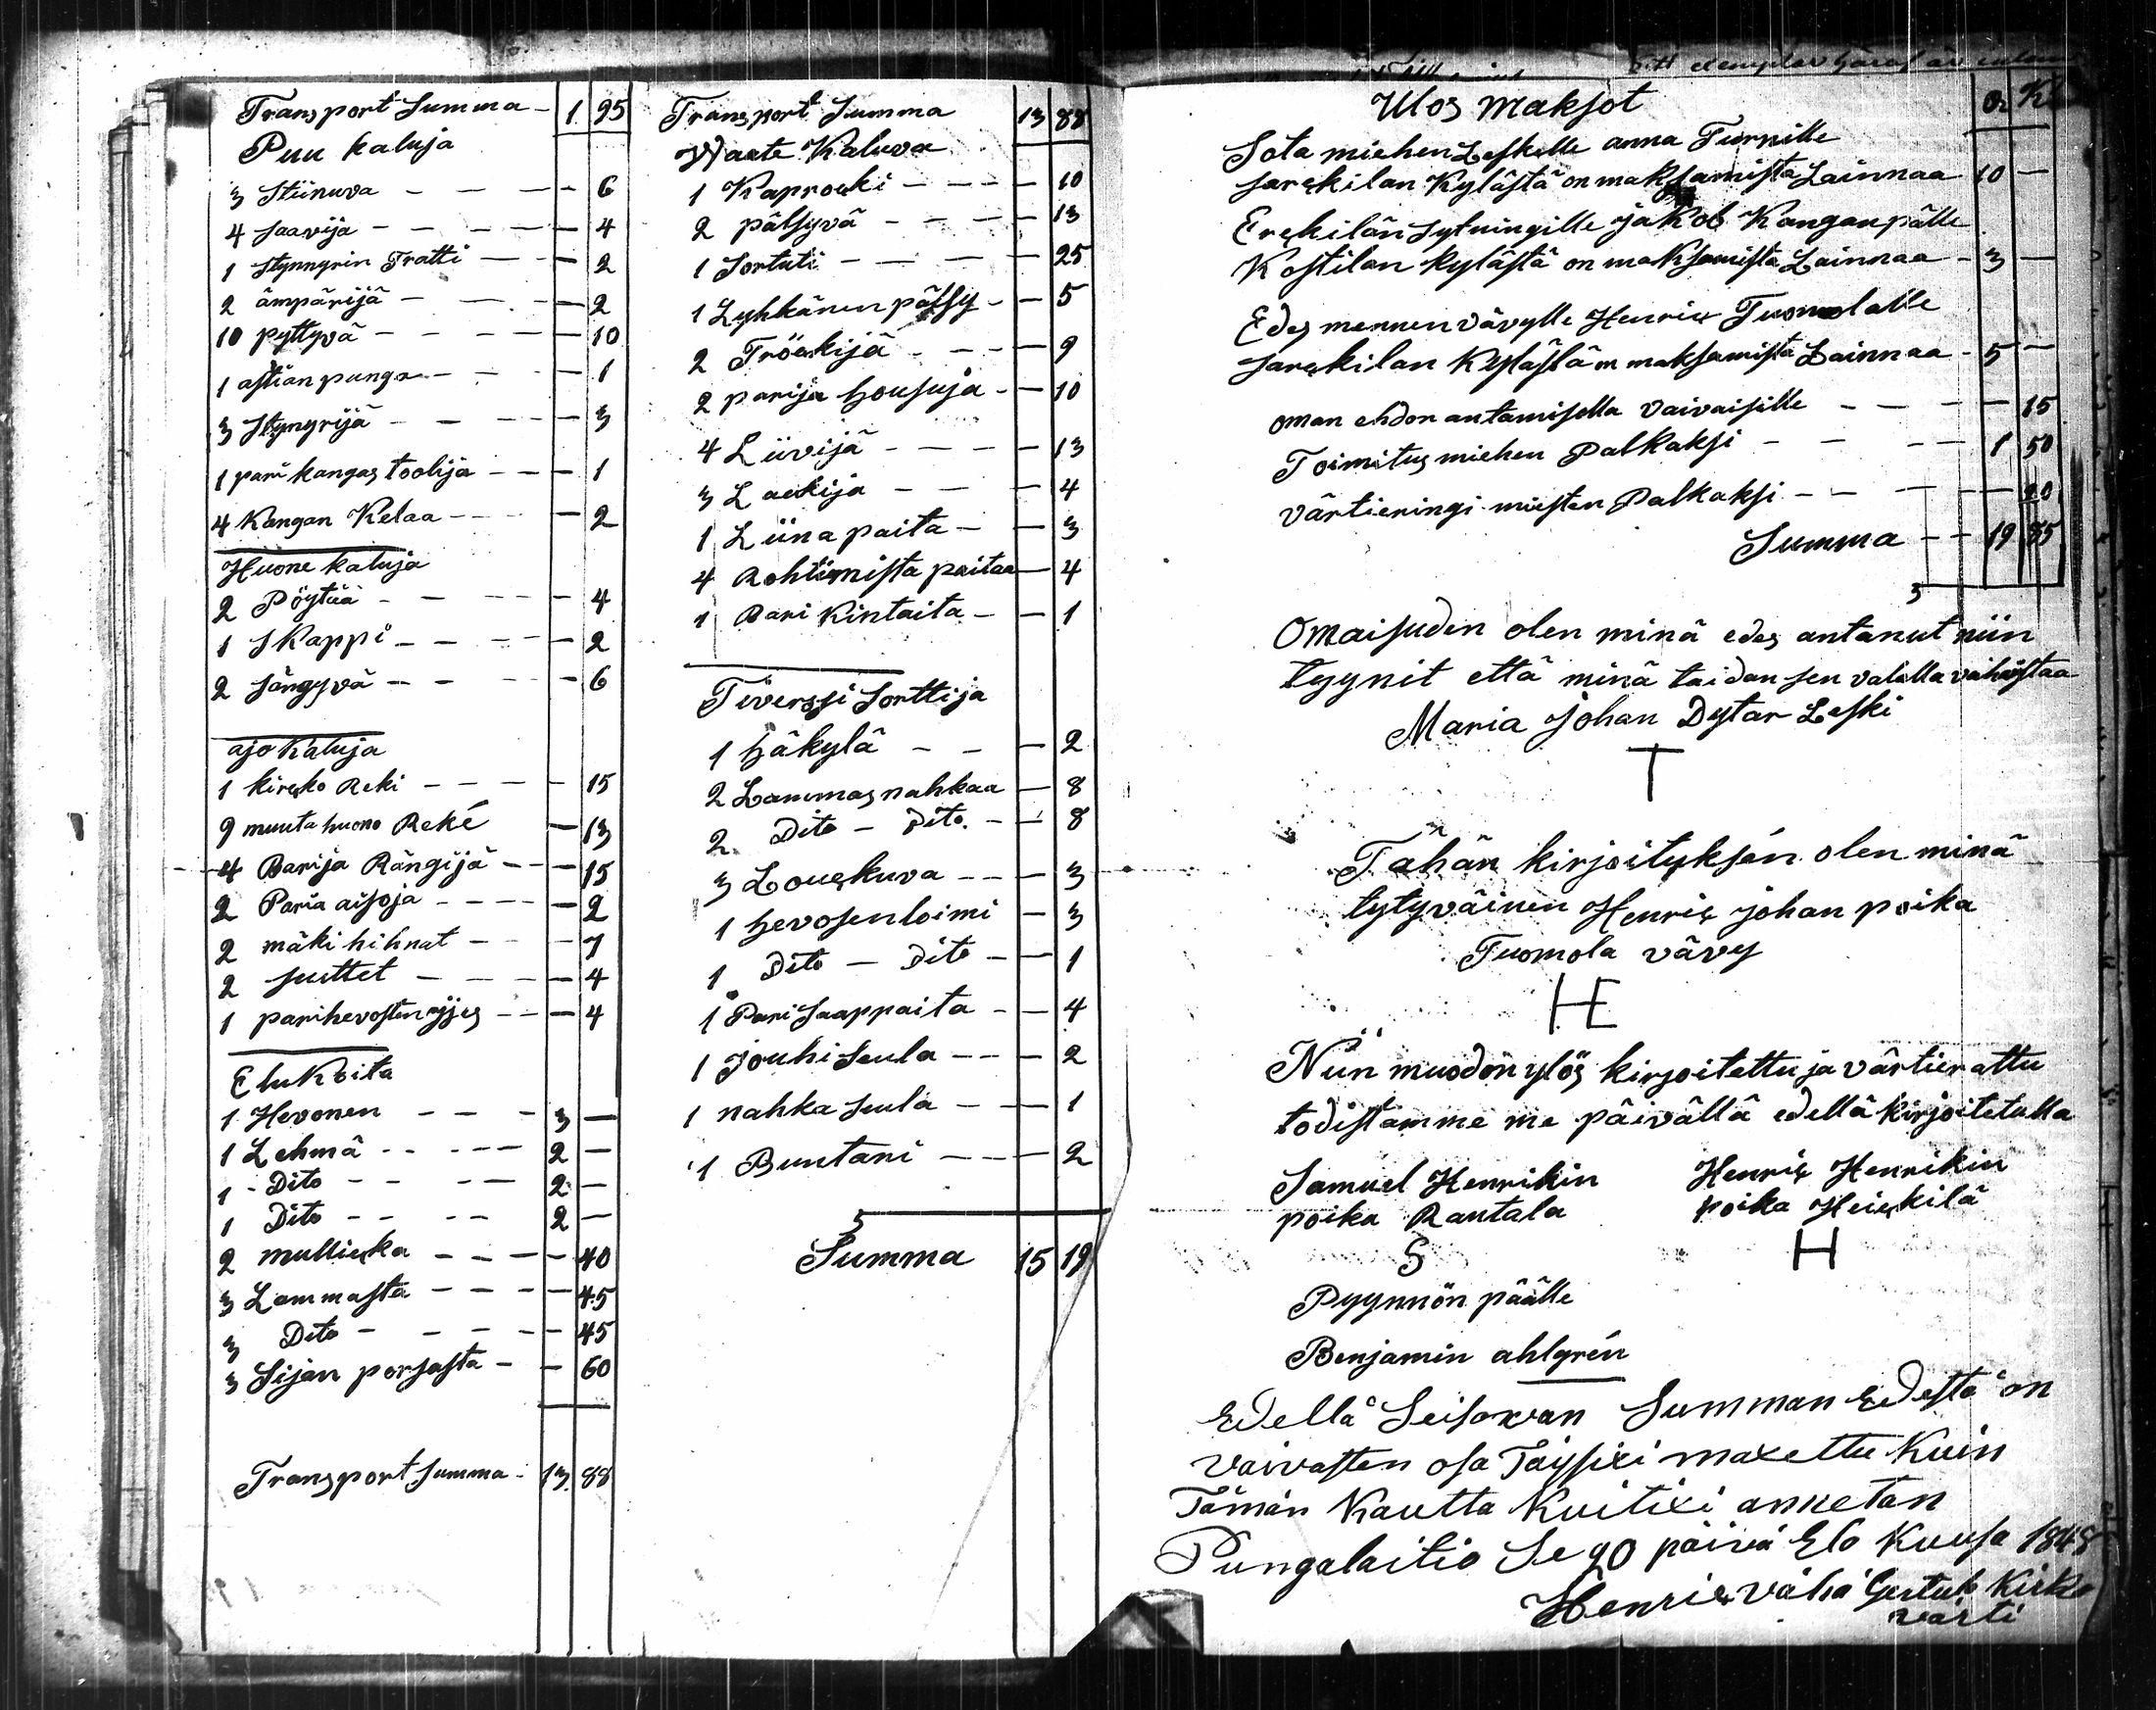 Transport Summa - 1 95
Puu kaluja
3 Stiinuva - - - - 6
4 saavija - - - - - 4
1 Stynngrin Tratti - - - 2
2 ämpärijä - - - 2
10 pyttyvä - - - - - 10
1 astian punga - - - 1
3 Styngrijä - - - - 3
1 pari kangas toolija - - - 1
4 Kangan Kelaa - - - 2
Huone kaluja
2 Pöytää - - - - - 4
1 SKappi - - - - 2
2 sängyvä - - - - 6
ajo Kaluja
1 kircko Reki - - - - - 15
9 muuta huono Reké - 13
4 Barija Rängijä - - - 15
2 Paria aisoja - - - - - 2
2 mäki hihnat - - - 7
2 suittet - - - - 4
1 pari hevosten - - - 4
Elukoita
1 Hevonen - - - 3 -
1 Lehmä - - - - - 2 -
1 - Dito - - - - 2 -
1 Dito - - - - 2 -
2 mullicka - - - - - 40
3 Lammasta - - - - 45
3 Dito - - - - - 45
3 Sijan porsasta - - 60
Transport summa - 13 88
Transport Summa 13 88
Waate Kaluva
1 Kaprocki - - - - 10
2 pälsyvä - - - - 13
1 Sortuti - - - - 25
1 Lyhkänen pälsy - - 5
2 Tröckijä - - - - 9
2 parija housuja - - 10
4 Liivijä - - - - 13
3 Lackija - - - 4
1 Liina paita - - 3
4 Rohtimista paitaa - 4
1 Pari Kintaita - - 1
Tiverssi Sorttija
1 häkylä - - - 2
2 Lammas nahkaa - 8
2 Dito - Dito. - - 8
3 Louskuva - - - - 3
1 hevosen loimi - 3
1 Dito - Dito - - 1
1 Pari Saappaita - - 4
1 jouhi Seula - - - 2
1 nahka seula - - - 1
1 Buntari - - - 2
Summa 15 19
Ulos maksot
Sota miehen Leskelle anna Turpille
sarckilan Kylästä on maksamista Lainnaa 10 -
Erckilän Sytningille Jakob Kanganpälle
Kostilan kylästä on maksamista Lainnaa - 3 -
Edes mennen vävylle Henric Tuomolalle
sarckilan Kylästä on maksamista Lainnaa - 5 -
oman ehdon antamisella vaivaisille - - - - 15
Toimitus miehen Palkaksi - - - - 1 50
värtieringi miesten Palkaksi - - - - 20
Summa - - 19 85
Omaisuden olen minä edes antanut niin
tyynit että minä taidan sen valalla vahvistaa
Maria Johan Dytar Leski
T
Tähän kirjoityksén olen minä
tytyväinen Henric Johan poika
Tuomola vävy
HE
Niin muodon ylös kirjoitettu ja värtierattu
todistamme me päivällä edellä kirjoitetulla
Samuel Henrikin Henric Henrikin
poika Rantala poika Heickilä
S H
Pyynnön päälle
Benjamin ahlgrén
Edellä Seisowan Summan Edestä on
Vaivasten osa Täysixi maxettu Kuin
Tämän Kautta Kuitixi annetan
Pungalaitio Se 20 päivä Elo Kuusa 1848
Henric Vähä Kirko
värti